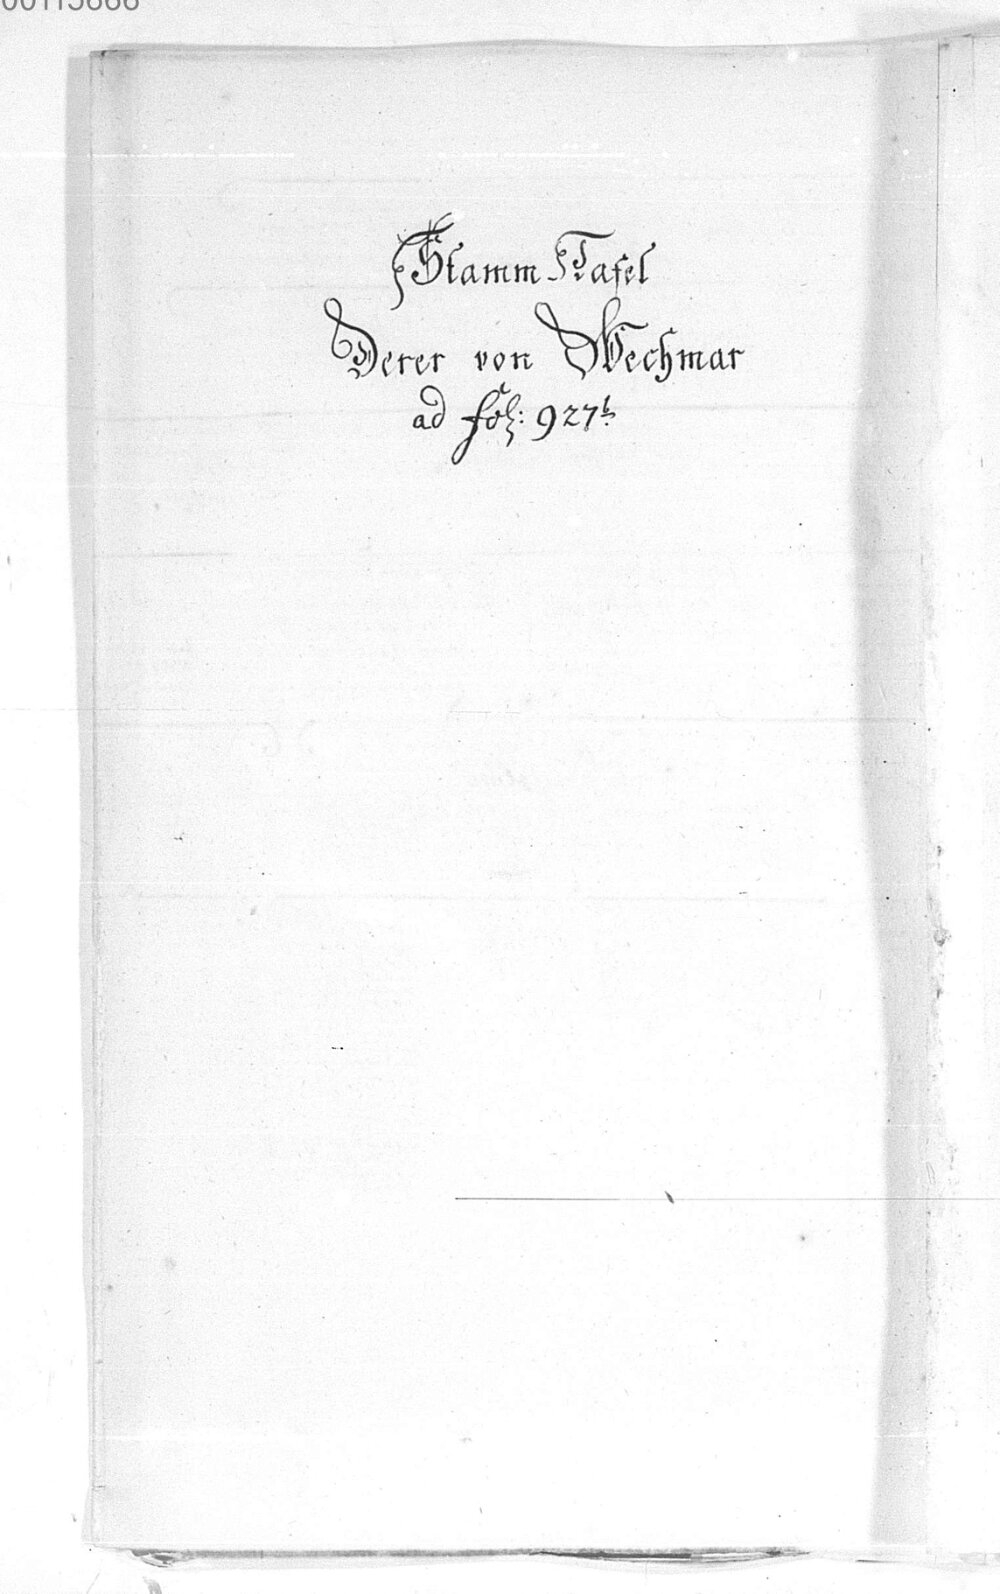 00115666
Stamm Tafel
Derer von Wechmar
ad fol: 927b.